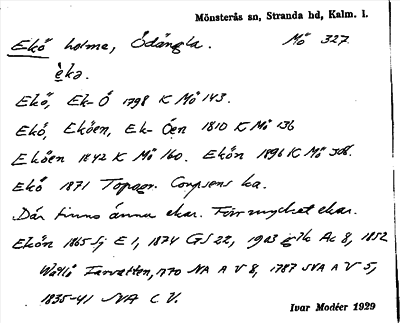 Mönsterås sn, Stranda hd, Kalm. l.
Ekö holme, Ödängla. Mö 327
èka.
Ekö, Ek-Ö 1798 K Mö 143.
Ekö, Eköen, Ek-Öen 1810 K Mö 136
Eköen 1842 K Mö 160. Ekön 1896 K Mö 308.
Ekö 1871 Topogr. Corpsens ka.
Där finns ännu ekar. Förr mycket ekar.
Ekön 1865 Sj E 1, 1874 GS 22, 1903 Ac 8, 1852
Farvatten, 1770 NA A V 8, 1787 SVA A V 5,
1835-41 NA C V.
Ivar Modéer 1929